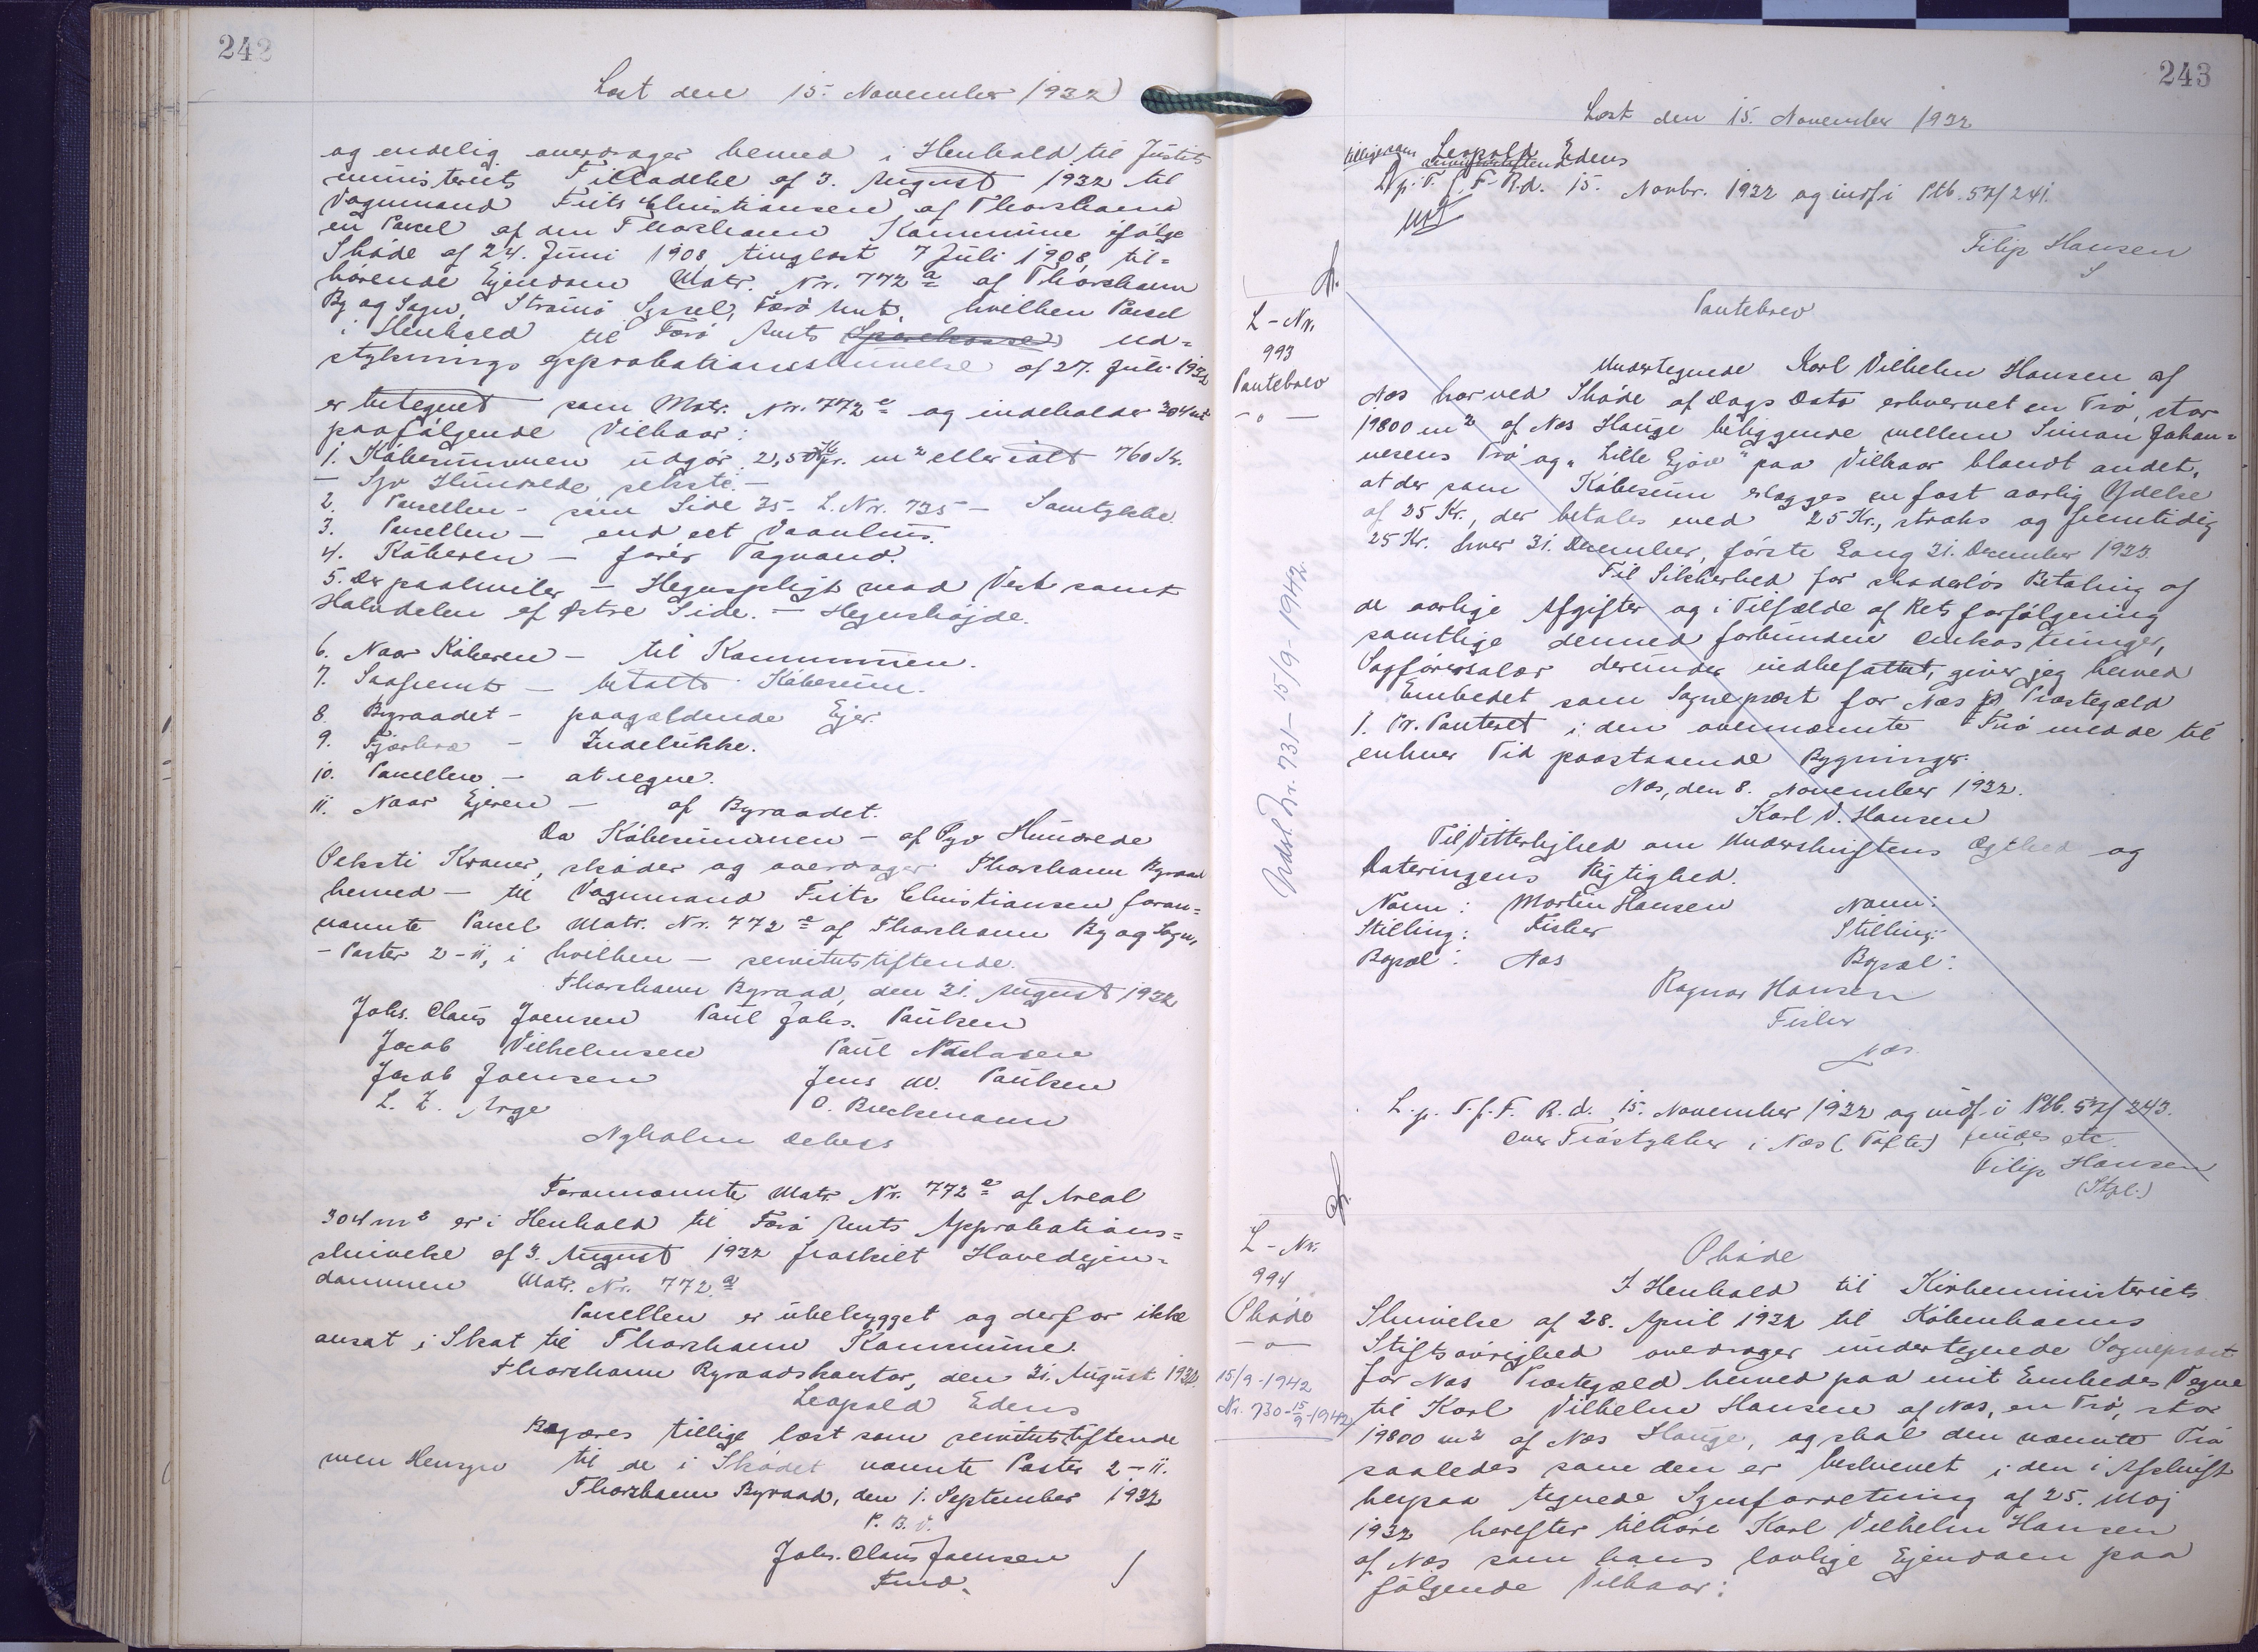 242
Læst den 15. November 1932
og endelig overdrager hermed i Henhold til Justits
ministeriets Tilladelse af 3. August 1932 til
Vognmand Frits Christiansen af Thorshavn
en Parcel af den Thorshavn Kommune ifølge
Skøde af 24. Juni 1908, tinglæst 7 Juli 1908, til-
hørende Ejendom Matr. Nr. 772 a af Thorshavn
By og Sogn, Strømø Syssel, Færø Amt, hvilken Parcel
i Henhold til Færø Amts Sparekasse ud-
styknings approbationsskrivelse af 27. Juli 1932
er betegnet som Matr. Nr. 772 e og indeholder 304 m2
paafølgende Vilkaar:
1. Købesummen udgør 2,50 Kr pr. m2 eller ialt 760 Kr.
- Syv Hundrede seksti. -
2. Parcellen - som Side 35 - L. Nr. 735 - Samtykke.
3. Parcellen - end eet Vaanhus.
4. Køberen - fører Tagvand.
5. Der paahviler - Hegnspligt mod Vest samt
Halvdelen af Østre Side. - Hegnshøjde.
6. Naar Køberen - til Kommunen.
7. Saafremt - betalte Købesum.
8. Byraadet - paagældende Ejer.
9. Fjerkræ - Indelukke.
10. Parcellen - at regne.
11. Naar Ejeren - af Byraadet.
Da Købesummen - af Syv Hundrede
Seksti Kroner, skøder og overdrager Thorshavn Byraad
hermed - til Vognmand Frits Christiansen foran-
nævnte Parcel Matr. Nr. 772 e af Thorshavn By og Sogn,
- Poster 2-11, i hvilken - servitutstiftende.
Thorshavn Byraad, den 31. August 1932
Johs. Claus Joensen Paul Johs. Paulsen
Jacob Vilhelmsen Paul Niclasen
Jacob Joensen Jens M. Paulsen
L. Z. Arge O. Breckmann
Nyholm Debess
Forannævnte Matr. Nr. 772 e af Areal
304 m2 er i Henhold til Færø Amts Approbations-
skrivelse af 3. August 1932 fraskilt Hovedejen-
dommen Matr. Nr. 772 a
Parcellen er ubebygget og derfor ikke
ansat i Skat til Thorshavn Kommune.
Thorshavn Byraadskontor, den 31. August 1932.
Leopold Edens
Begæres tillige læst som servitutstiftende
men Hensyn til de i Skødet nævnte Poster 2-11.
Thorshavn Byraad, den 1. September 1932
P. B. V.
Johs. Claus Joensen
Fmd.
243
Læst den 15. November 1932
Leopold Edens
tillige som servitutstiftend
L. p. T. f. F. R.d. 15. Novbr. 1932 og indf. i Ptb. 57/241.
Filip Hansen
L-Nr.
993
Pantebrev
Pantebrev
Undertegnede Karl Vilhelm Hansen af
Næs har ved Skøde af Dags Dato erhvervet en Trø, stor
19800 m2 af Næs Hauge beliggende mellem Simon Johan-
nesens Trø og "Lille Gjøv" paa Vilkaar blandt andet,
at der som Købesum erlægges en fast aarlig Ydelse
af 25 Kr., der betales med 25 Kr., straks og fremtidig
25 Kr. hver 31. December, første Gang 31. December 1933.
Til Sikkerhed for skadesløs Betaling af
de aarlige Afgifter og i Tilfælde af Rets forfølgning
samtlige dermed forbundne Omkostninger,
Sagførersalær derunder indbefattet, giver jeg hermed
Embedet som Sognepræst for Næs Præstegæld
1. Pr. Panteret i den ovennævnte Trø med de til
enhver Tid paastaaende Bygninger.
Næs, den 8. November 1932.
Karl V. Hansen
Til Vitterlighed om Underskriftens Ægthed og
Dateringens Rigtighed.
Navn: Martin Hansen Navn:
Stilling: Fisker Stilling:
Bopæl: Næs Bopæl:
Ragnar Hansen
Fisker
Næs.
L. p. T. f. F. R. d. 15. November 1932 og indf. i Ptb. 57/243.
Over Trøstykker i Næs (Tofte) findes etc.
Filip Hansen
(Stpl.)
Udsl. Nr. 731 - 15/9 - 1942
L-Nr.
994
Skøde
15/9-1942
Nr. 730 - 15/9 - 1942
Skøde
I Henhold til Kirkeministeriets
Skrivelse af 28. April 1932 til Københavns
Stiftsøvrighed overdrager undertegnede Sognepræst
for Næs Præstegæld hermed paa mit Embedes Vegne
til Karl Vilhelm Hansen af Næs, en Trø, stor
19800 m2 af Næs Hauge, og skal den nævnte Trø
saaledes som den er beskrevet i den i Afskrift
herpaa tegnede Synsforretning af 25. Maj
1932 herefter tilhøre Karl Vilhelm Hansen
af Næs som hans lovlige Ejendom paa
følgende Vilkaar: